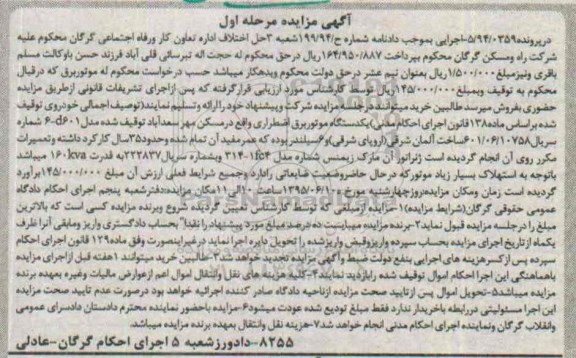 آگهی مزایده مرحله اول
درپرونده۵/۹۴/۰۳۵۹-اجرایی بموجب دادنامه شماره ح۱۹۹/۹۴شعبه ۳حل اختلاف اداره تعاون کار ورفاه اجتماعی گرگان محکوم علیه
شرکت راه ومسکن گرگان محکوم بپرداخت ۱۶۴/۹۵۰/۸۸۷ریال درحق محکوم له حجت اله تبرسائی قلی آباد فرزند حسن باوکالت مسلم
باقری ونیزمبلغ۱/۵۰۰/۰۰۰ریال بعنوان نیم عشر درحق دولت محکوم وبدهکار میباشد حسب درخواست محکوم له موتوربرق که درقبال
محکوم به توقیف وبمبلغ۱۴۵/۰۰۰/۰۰۰ریال توسط کارشناس مورد ارزیابی قرارگرفته که پس ازاجرای تشریفات قانونی ازطریق مزایده
حضوری بفروش میرسد طالبین خرید میتوانند درجلسه مزایده شرکت وپیشنهاد خود راارائه وتسلیم نمایند(توصیف اجمالی خودروی توقیف
شده براساس ماده۱۳۸قانون اجرای احکام مدنی)یکدستگاه موتوربرق اضطراری واقع درمسکن مهر سعدآباد توقیف شده مدل۶-d۶۰۱ شماره
سریال۶۰۱/۰۶/۱۰۷۵۸ساخت آلمان شرقی(اروپای شرقی)و۶سیلندربوده که عمرمفید آن تمام شده وحدود۳۵سال کارکرد داشته وتعمیرات
مکرر روی آن انجام گردیده است ژنراتور آن مارک زیمنس شماره مدل ۳۱۴-۱fc۴ وبشماره سریال۲۲۲۸۳۷به قدرت ۱۶۰kva میباشد
باتوجه به استهلاک بسیار زیاد موتورکه درحال حاضروضعیت ضایعاتی رادارد وجمیع شرایط فعلی ارزش آن مبلغ ۱۴۵/۰۰۰/۰۰۰برآورد
گردیده است زمان ومکان مزایده:روزچهارشنبه مورخ ۱۳۹۵/۰۶/۱۰ساعت ۱۰الی۱۱مکان مزایده:دفترشعبه پنجم اجرای احکام دادگاه
عمومی حقوقی گرگان(شرایط مزایده)۱-مزایده ازمبلغی که توسط کارشناس تعیین گردیده شروع وبرنده مزایده کسی است که بالاترین
مبلغ را درجلسه مزایده قبول نماید۲-برنده مزایده میبایست ده درصد مبلغ مورد پیشنهاد را نقدا" بحساب دادگستری واریز ومابقی آنرا ظرف
یکماه ازتاریخ اجرای مزایده بحساب سپرده واریزوفیش واریزشده را تحویل دایره اجرا نماید درغیراینصورت وفق ماده۱۲۹ قانون اجرای احکام
سپرده پس ازکسرهزینه های اجرایی بنفع دولت ضبط وآگهی مزایده تجدید خواهد شد۳-طالبین خرید میتوانند ۱هفته قبل ازاجرای مزایده
باهماهنگی این اجرا احکام اموال توقیف شده رابازدید نمایند۴-کلیه هزینه های نقل وانتقال اموال اعم ازعوارض مالیات وغیره بعهده برنده
مزایده میباشد۵-تحویل اموال پس ازتایید صحت مزایده ازناحیه دادگاه صادر کننده اجرائیه خواهد بود درصورت عدم تایید صحت مزایده
این اجرا مسئولیتی دررابطه باخریدار ندارد فقط مبلغ تودیع شده عودت میشود۶-مزایده باحضور نماینده محترم دادستان دادسرای عمومی
وانقلاب گرگان ونماینده اجرای احکام مدنی انجام خواهد شد۷-هزینه نقل وانتقال بعهده برنده مزایده میباشد.
۸۲۵۵-دادورزشعبه ۵ اجرای احکام گرگان-عادلی